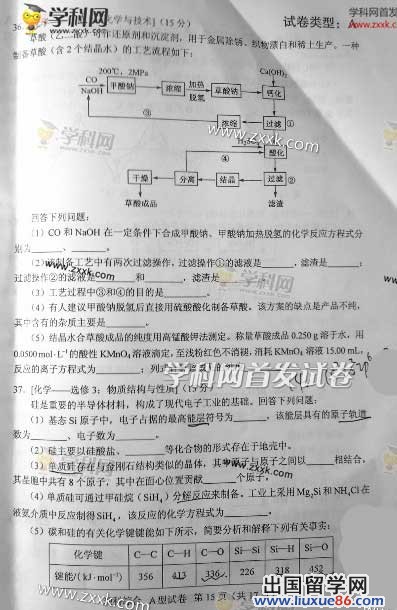 学科网首发
www.zxxk.com
学科网
www.zxxk.com
36.
化学与技术](15分)
试卷类型：A
草酸(乙二酸)可作还原剂和沉淀剂，用于金属除锈、织物漂白和稀土生产。一种
制备草酸(含2个结晶水)的工艺流程如下：
200℃，2MPa
Ca(OH)₂
CO
NaOH
甲酸钠
浓缩
加热
脱氢
草酸钠
钙化
③
浓缩
过滤
①
④
酸化
干燥
分离
结晶
过滤
②
草酸成品
滤渣
回答下列问题：
(1) CO和NaOH在一定条件下合成甲酸钠、甲酸钠加热脱氢的化学反应方程式分
别为______、______。
(2) 该制备工艺中有两次过滤操作，过滤操作①的滤液是______，滤渣是______；
过滤操作②的滤液是______和______，滤渣是______。
(3) 工艺过程中③和④的目的是______。
(4) 有人建议甲酸钠脱氢后直接用硫酸酸化制备草酸。该方案的缺点是产品不纯，
其中含有的杂质主要是______。
(5) 结晶水合草酸成品的纯度用高锰酸钾法测定。称量草酸成品0.250 g溶于水，用
0.0500 mol·L⁻¹的酸性KMnO₄溶液滴定，至浅粉红色不消褪，消耗KMnO₄溶液15.00 mL，
反应的离子方程式为______；列式
学科网首发试卷
37. [化学——选修3：物质结构与性质](15分)
硅是重要的半导体材料，构成了现代电子工业的基础。回答下列问题：
(1) 基态Si原子中，电子占据的最高能层符号为______，该能层具有的原子轨道
数为______、电子数为______。
(2) 硅主要以硅酸盐、______等化合物的形式存在于地壳中。
(3) 单质硅存在与金刚石结构类似的晶体，其中原子与原子之间以______相结合，
其晶胞中共有8个原子，其中在面心位置贡献______个原子。
(4) 单质硅可通过甲硅烷(SiH₄)分解反应来制备。工业上采用Mg₂Si和NH₄Cl在
液氨介质中反应制得SiH₄，该反应的化学方程式为______。
(5) 碳和硅的有关化学键键能如下所示，简要分析和解释下列有关事实：
化学键 C—C C—H C—O Si—Si Si—H Si—O
键能/(kJ·mol⁻¹) 356 413 336 226 318 452
A型试卷 第15页(共17
出国留学网
www.liuxue86.com